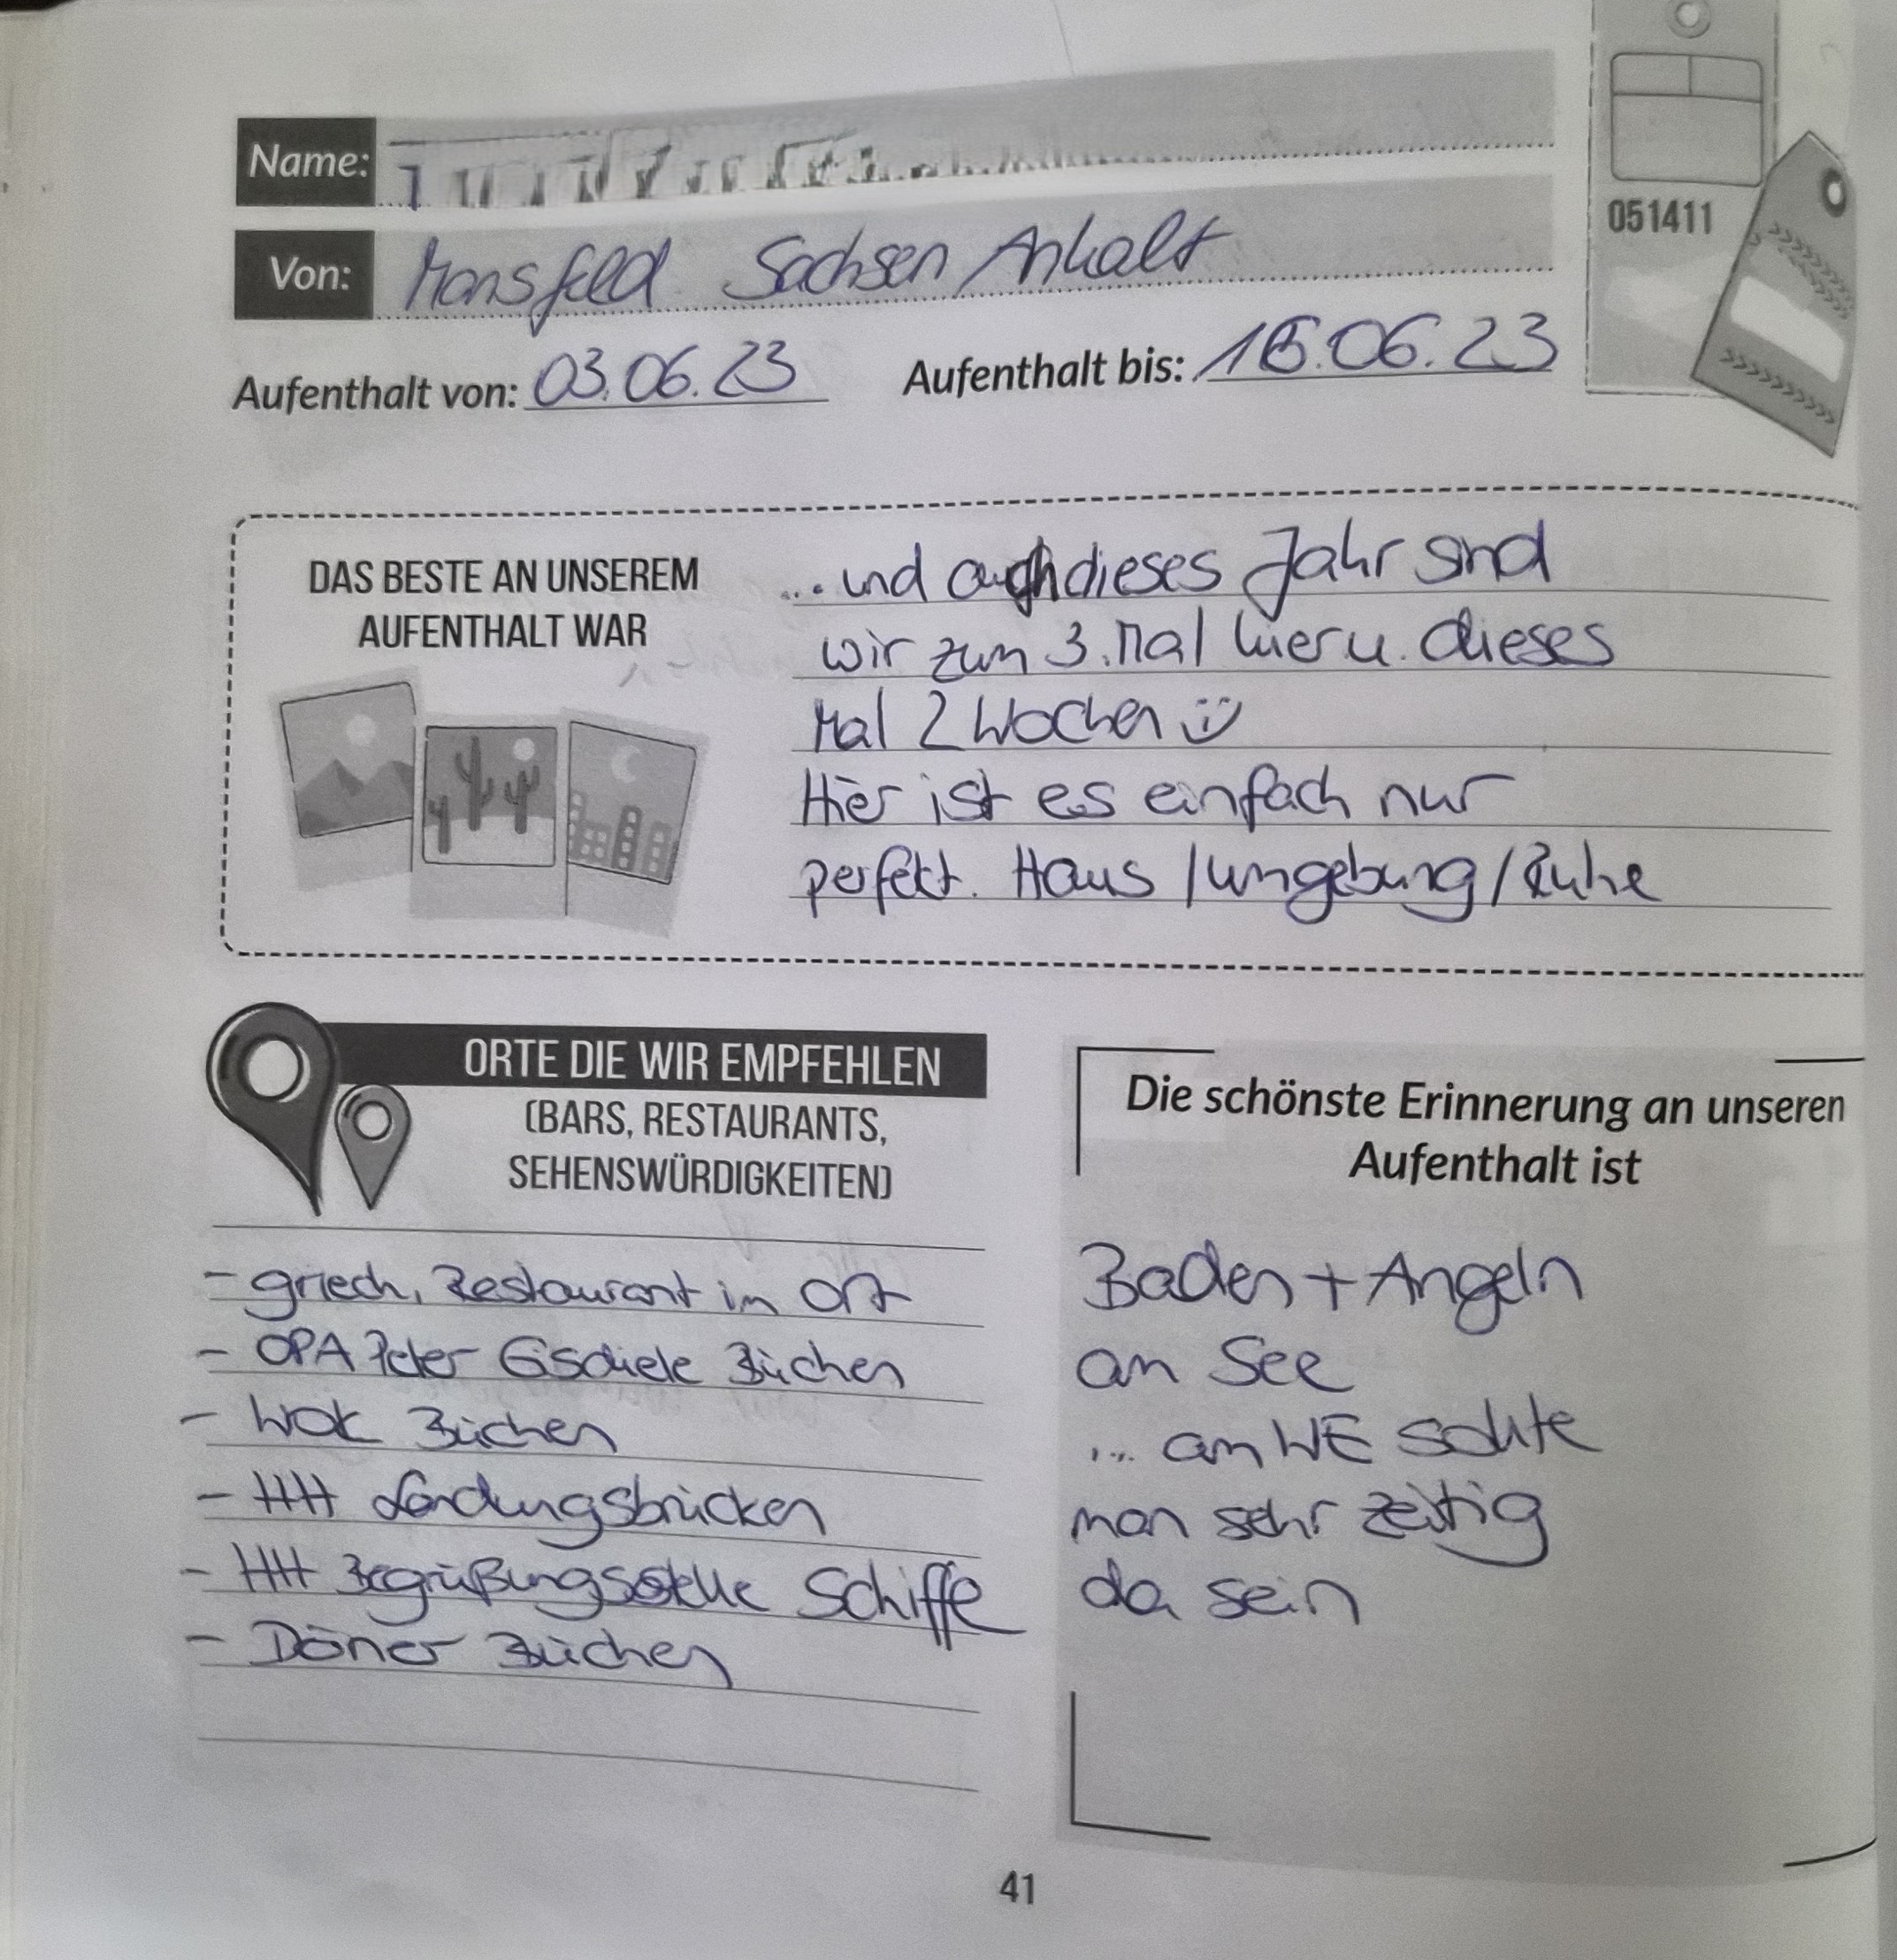 Name:
Von: Mansfeld Sachsen Anhalt
051411
Aufenthalt von: 03.06.23 Aufenthalt bis: 16.06.23
DAS BESTE AN UNSEREM
AUFENTHALT WAR
... und auch dieses Jahr sind
wir zum 3. Mal hier u. dieses
Mal 2 Wochen
Hier ist es einfach nur
perfekt. Haus / Umgebung / Ruhe
ORTE DIE WIR EMPFEHLEN
(BARS, RESTAURANTS,
SEHENSWÜRDIGKEITEN)
- griech. Restaurant im Ort
- OPA Peter Eisdiele Büchen
- Wok Büchen
- HH Landungsbrücken
- HH Begrüßungsstelle Schiffe
- Döner Büchen
Die schönste Erinnerung an unseren
Aufenthalt ist
Baden + Angeln
am See
... am WE sollte
man sehr zeitig
da sein
41